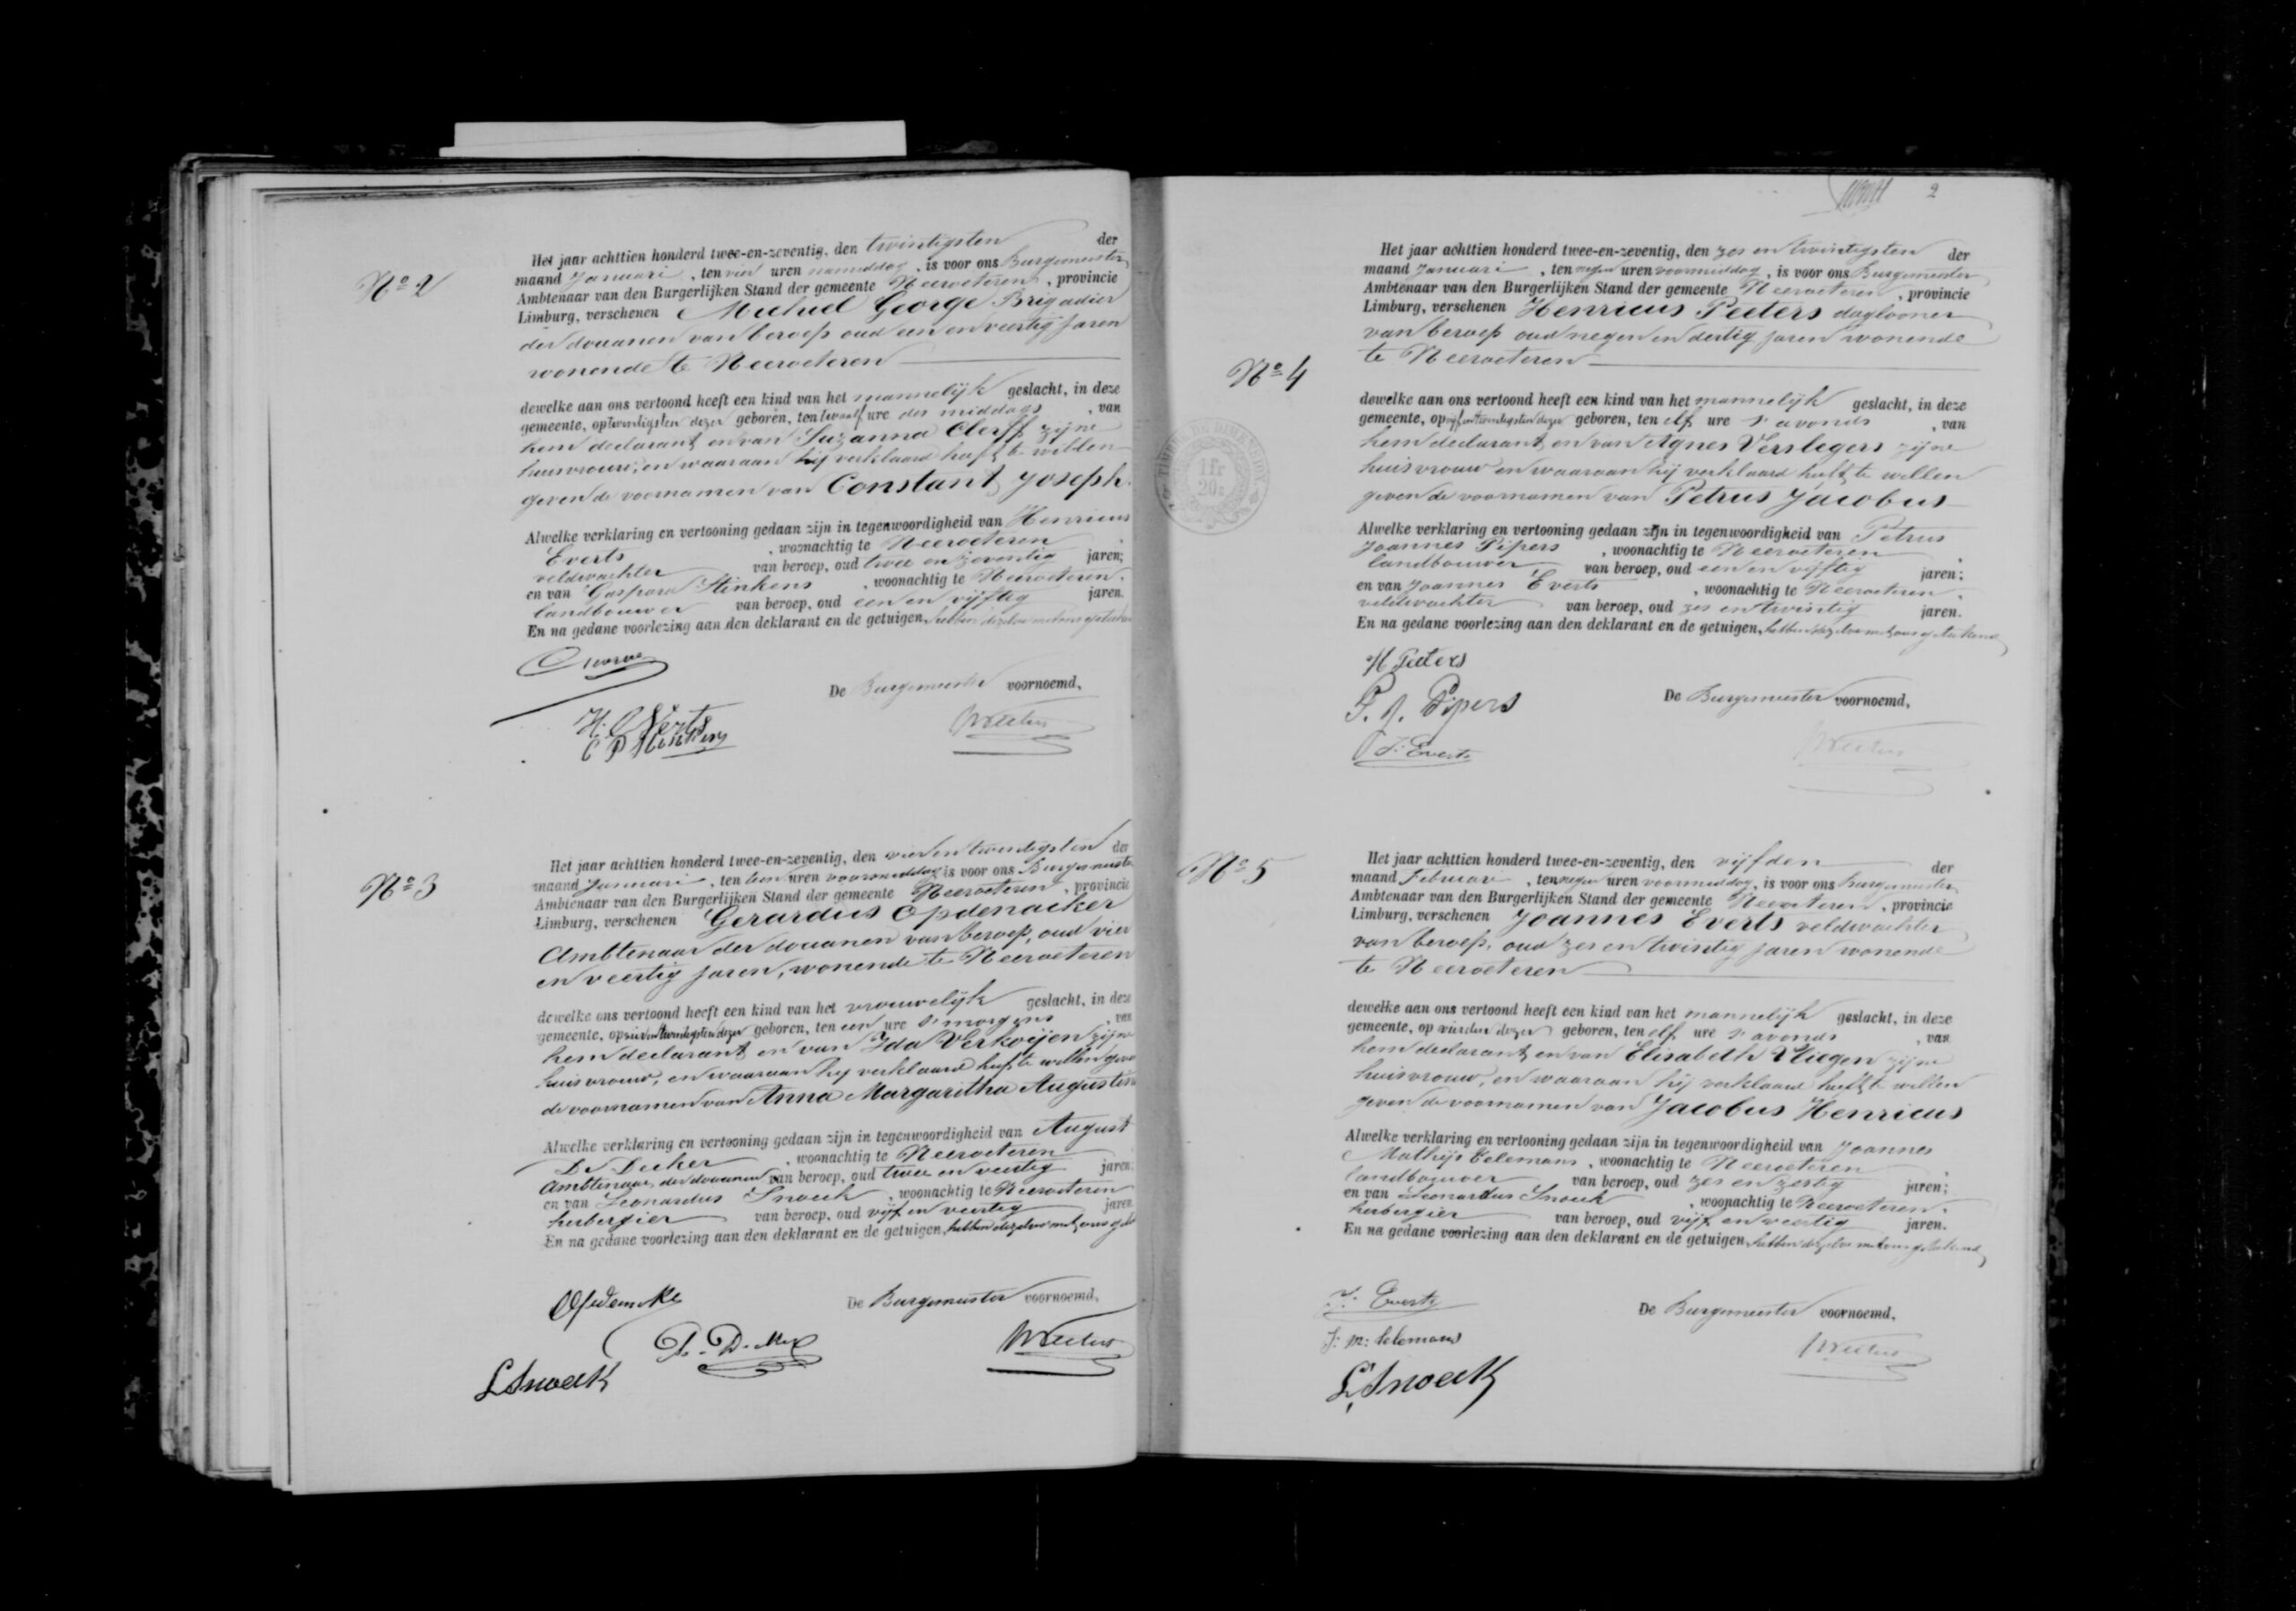 Nº 2
Het jaar achttien honderd twee-en-zeventig, den twintigsten der
maand Januari, ten vier uren namiddag, is voor ons Burgemeester
Ambtenaar van den Burgerlijken Stand der gemeente Neeroeteren, provincie
Limburg, verschenen Michel George Brigadier
der douanen van beroep oud een en veertig jaren
wonende te Neeroeteren
dewelke aan ons vertoond heeft een kind van het mannelijk geslacht, in deze
gemeente, op twintigsten dezer geboren, ten twaalf ure des middags, van
hem declarant en van Suzanna Clerff zijne
huisvrouw, en waaraan hij verklaard heeft te willen
geven de voornamen van Constant Joseph.
Alwelke verklaring en vertooning gedaan zijn in tegenwoordigheid van Henricus
Everts, woonachtig te Neeroeteren,
veldwachter van beroep, oud twee en zeventig jaren;
en van Gaspard Stinkens, woonachtig te Neeroeteren,
landbouwer van beroep, oud een en vijftig jaren.
En na gedane voorlezing aan den deklarant en de getuigen, hebben dezelve met ons geteekend
George
De Burgemeester voornoemd,
H. Everts
Nº 3
Het jaar achttien honderd twee-en-zeventig, den vier en twintigsten der
maand Januari, ten tien uren voormiddag is voor ons Burgemeester
Ambtenaar van den Burgerlijken Stand der gemeente Neeroeteren, provincie
Limburg, verschenen Gerardus Opdenacker
Ambtenaar der douanen van beroep, oud vier
en veertig jaren, wonende te Neeroeteren
dewelke ons vertoond heeft een kind van het vrouwelijk geslacht, in deze
gemeente, op vier en twintigsten dezer geboren, ten een ure s'morgens, van
hem declarant en van Ida Verkoijen zijne
huisvrouw, en waaraan hij verklaard heeft te willen geven
de voornamen van Anna Margaritha Augustin
Alwelke verklaring en vertooning gedaan zijn in tegenwoordigheid van August
De Decker, woonachtig te Neeroeteren
Ambtenaar der douanen van beroep, oud twee en veertig jaren;
en van Leonardus Snoeck, woonachtig te Neeroeteren
herbergier van beroep, oud vijf en veertig jaren
En na gedane voorlezing aan den deklarant en de getuigen, hebben dezelve met ons get
De Burgemeester voornoemd,
L Snoeck
2
Nº 4
Het jaar achttien honderd twee-en-zeventig, den zes en twintigsten der
maand Januari, ten negen uren voormiddag, is voor ons Burgemeester
Ambtenaar van den Burgerlijken Stand der gemeente Neeroeteren, provincie
Limburg, verschenen Henricus Peeters daglooner
van beroep oud negen en dertig jaren wonende
te Neeroeteren
dewelke aan ons vertoond heeft een kind van het mannelijk geslacht, in deze
gemeente, op vijf en twintigsten dezer geboren, ten elf ure s'avonds, van
hem declarant en van Agnes Verslegers zijne
huisvrouw en waaraan hij verklaard heeft te willen
geven de voornamen van Petrus Jacobus
Alwelke verklaring en vertooning gedaan zijn in tegenwoordigheid van Petrus
Joannes Pijpers, woonachtig te Neeroeteren,
landbouwer van beroep, oud een en vijftig jaren;
en van Joannes Everts, woonachtig te Neeroeteren,
veldwachter van beroep, oud zes en twintig jaren.
En na gedane voorlezing aan den deklarant en de getuigen, hebben dezelve met ons geteekend
H Peeters
De Burgemeester voornoemd,
P. J. Pijpers
J. Everts
1 fr
20 c
Nº 5
Het jaar achttien honderd twee-en-zeventig, den vijfden der
maand Februari, ten negen uren voormiddag, is voor ons Burgemeester
Ambtenaar van den Burgerlijken Stand der gemeente Neeroeteren, provincie
Limburg, verschenen Joannes Everts veldwachter
van beroep, oud zes en twintig jaren wonende
te Neeroeteren
dewelke aan ons vertoond heeft een kind van het mannelijk geslacht, in deze
gemeente, op vierden dezer geboren, ten elf ure s'avonds, van
hem declarant en van Elisabeth Vliegen zijne
huisvrouw, en waaraan hij verklaard heeft te willen
geven de voornamen van Jacobus Henricus
Alwelke verklaring en vertooning gedaan zijn in tegenwoordigheid van Joannes
Mathijs Celemans, woonachtig te Neeroeteren
landbouwer van beroep, oud zes en zestig jaren;
en van Leonardus Snoeck, woonachtig te Neeroeteren,
herbergier van beroep, oud vijf en veertig jaren.
En na gedane voorlezing aan den deklarant en de getuigen, hebben dezelve met ons geteekend
J. Everts
De Burgemeester voornoemd,
J: M: Celemans
L Snoeck